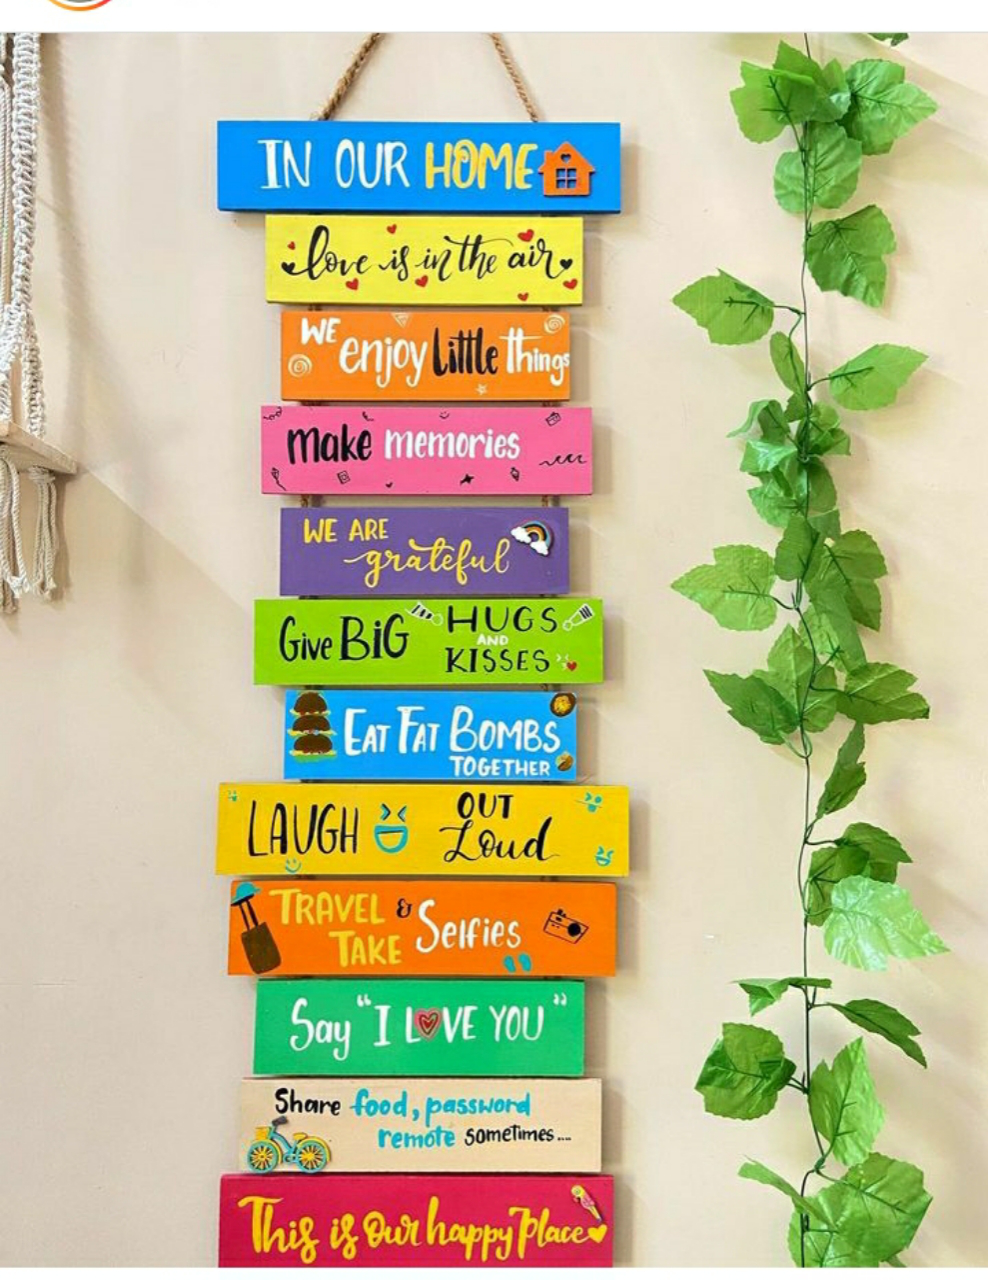 IN OUR HOME
love is in the air
WE enjoy little things
make memories
WE ARE
grateful
Give BiG HUGS
AND
KISSES
EAT FAT BOMBS
TOGETHER
LAUGH OUT
Loud
TRAVEL & Selfies
TAKE
Say "I LOVE YOU"
Share food, password
remote sometimes....
This is our happy Place